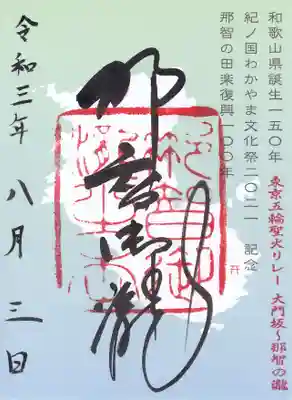 和歌山県誕生一五〇年
紀ノ国わかやま文化祭二〇二一 記念
那智の田楽復興一〇〇年
東京五輪聖火リレー 大門坂～那智の瀧
那智御瀧
令和三年 八月 三日